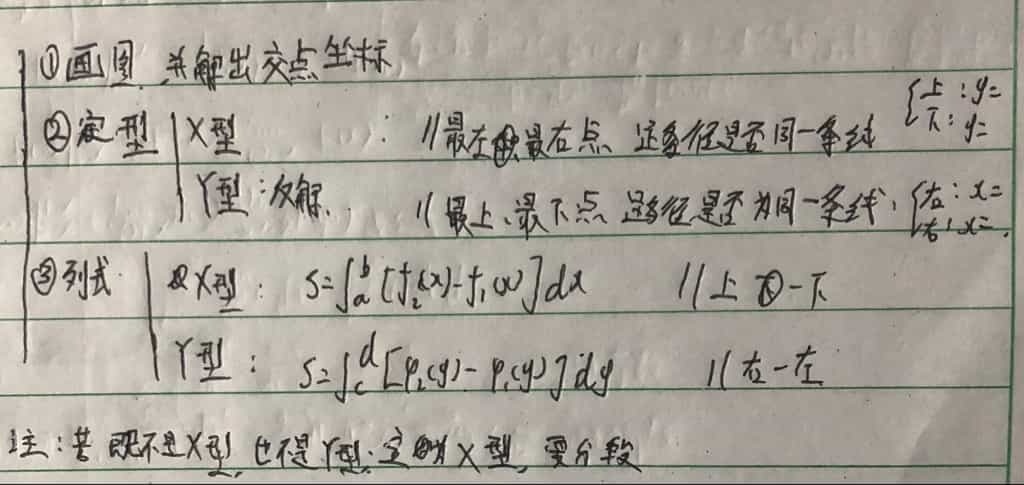 ①画图,并解出交点坐标
②定型 X型 : //最左、最右点 途径是否同一条线 {上:y=
下:y=
Y型:反解. //最上、最下点 途径是否为同一条线. {右:x=
x=.
③列式 X型: S=∫ₐᵇ[f₂(x)-f₁(x)]dx //上-下
Y型: S=∫cᵈ[φ₂(y)-φ₁(y)]dy //右-左
注:若既不是X型,也不是Y型.定为X型,要分段